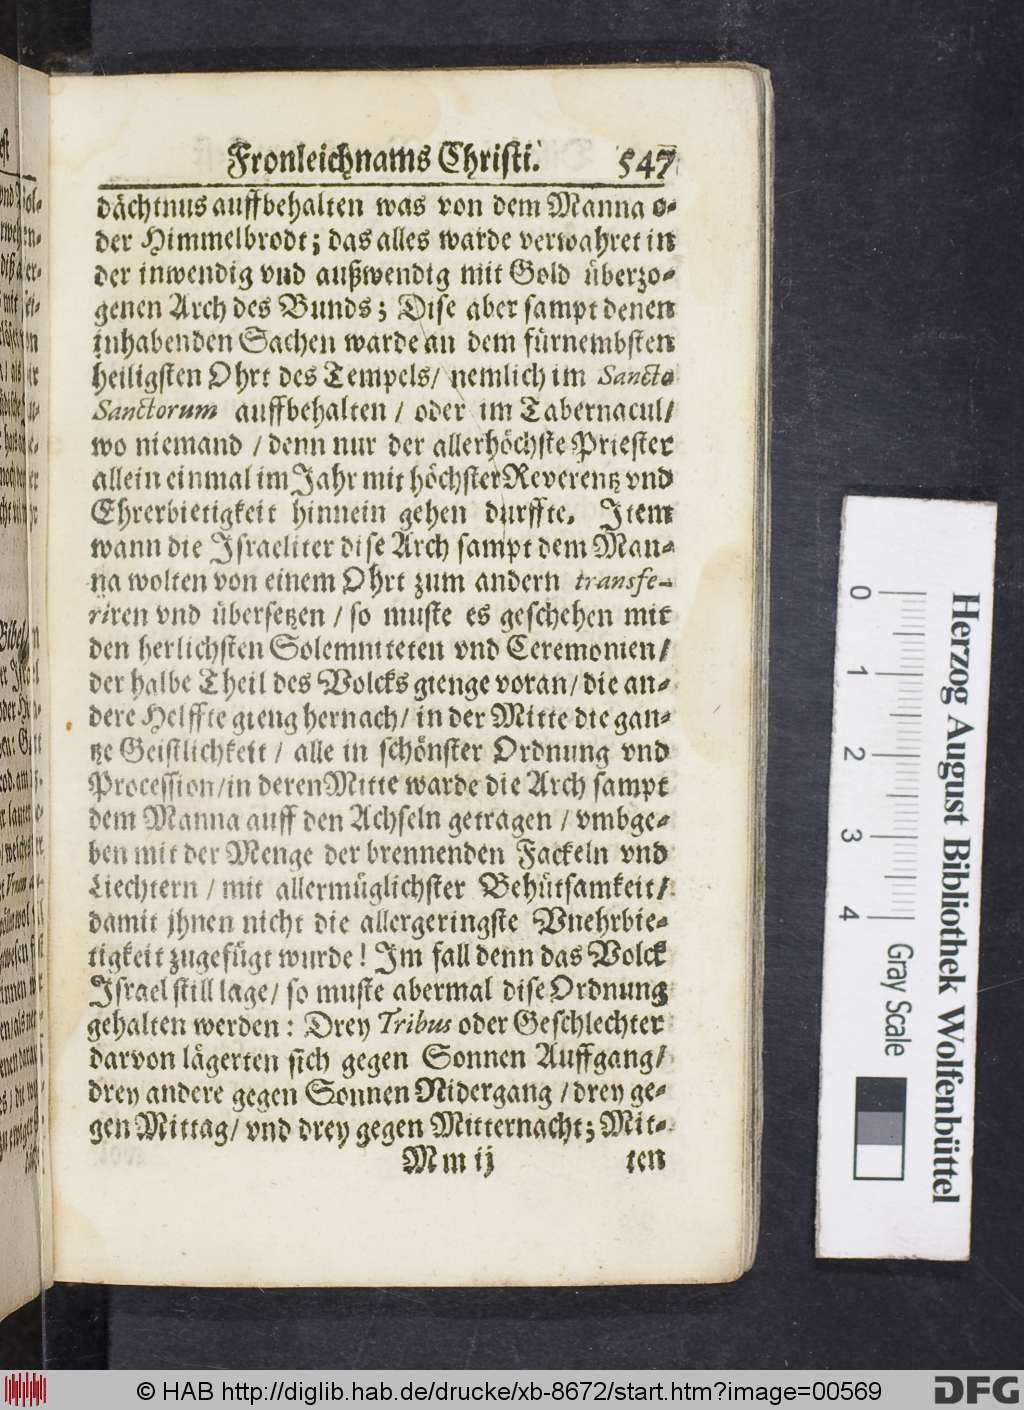 Fronleichnams Christi. 547
dächtnus auffbehalten was von dem Manna o-
der Himmelbrodt; das alles warde verwahret in
der inwendig vnd außwendig mit Gold überzo-
genen Arch des Bunds; Dise aber sampt denen
inhabenden Sachen warde an dem fürnembsten
heiligsten Ohrt des Tempels/ nemlich im Sancto
Sanctorum auffbehalten / oder im Tabernacul/
wo niemand / denn nur der allerhöchste Priester
allein einmal im Jahr mit höchster Reverentz vnd
Ehrerbietigkeit hinnein gehen durffte. Item
wann die Israeliter dise Arch sampt dem Man-
na wolten von einem Ohrt zum andern transfe-
riren vnd übersetzen / so muste es geschehen mit
den herlichsten Solemniteten vnd Ceremonien/
der halbe Theil des Volcks gienge voran/ die an-
dere Helffte gieng hernach/ in der Mitte die gan-
tze Geistlichkeit / alle in schönster Ordnung vnd
Procession/in deren Mitte warde die Arch sampt
dem Manna auff den Achseln getragen / vmbge-
ben mit der Menge der brennenden Fackeln vnd
Liechtern / mit allermüglichster Behütsamkeit/
damit jhnen nicht die allergeringste Vnehrbie-
tigkeit zugefügt wurde! Im fall denn das Volck
Israel still lage/ so muste abermal dise Ordnung
gehalten werden: Drey Tribus oder Geschlechter
darvon lägerten sich gegen Sonnen Auffgang/
drey andere gegen Sonnen Nidergang / drey ge-
gen Mittag/ vnd drey gegen Mitternacht; Mit-
Mm ij ten
0 1 2 3 4 Gray Scale
Herzog August Bibliothek Wolfenbüttel
© HAB http://diglib.hab.de/drucke/xb-8672/start.htm?image=00569
DFG